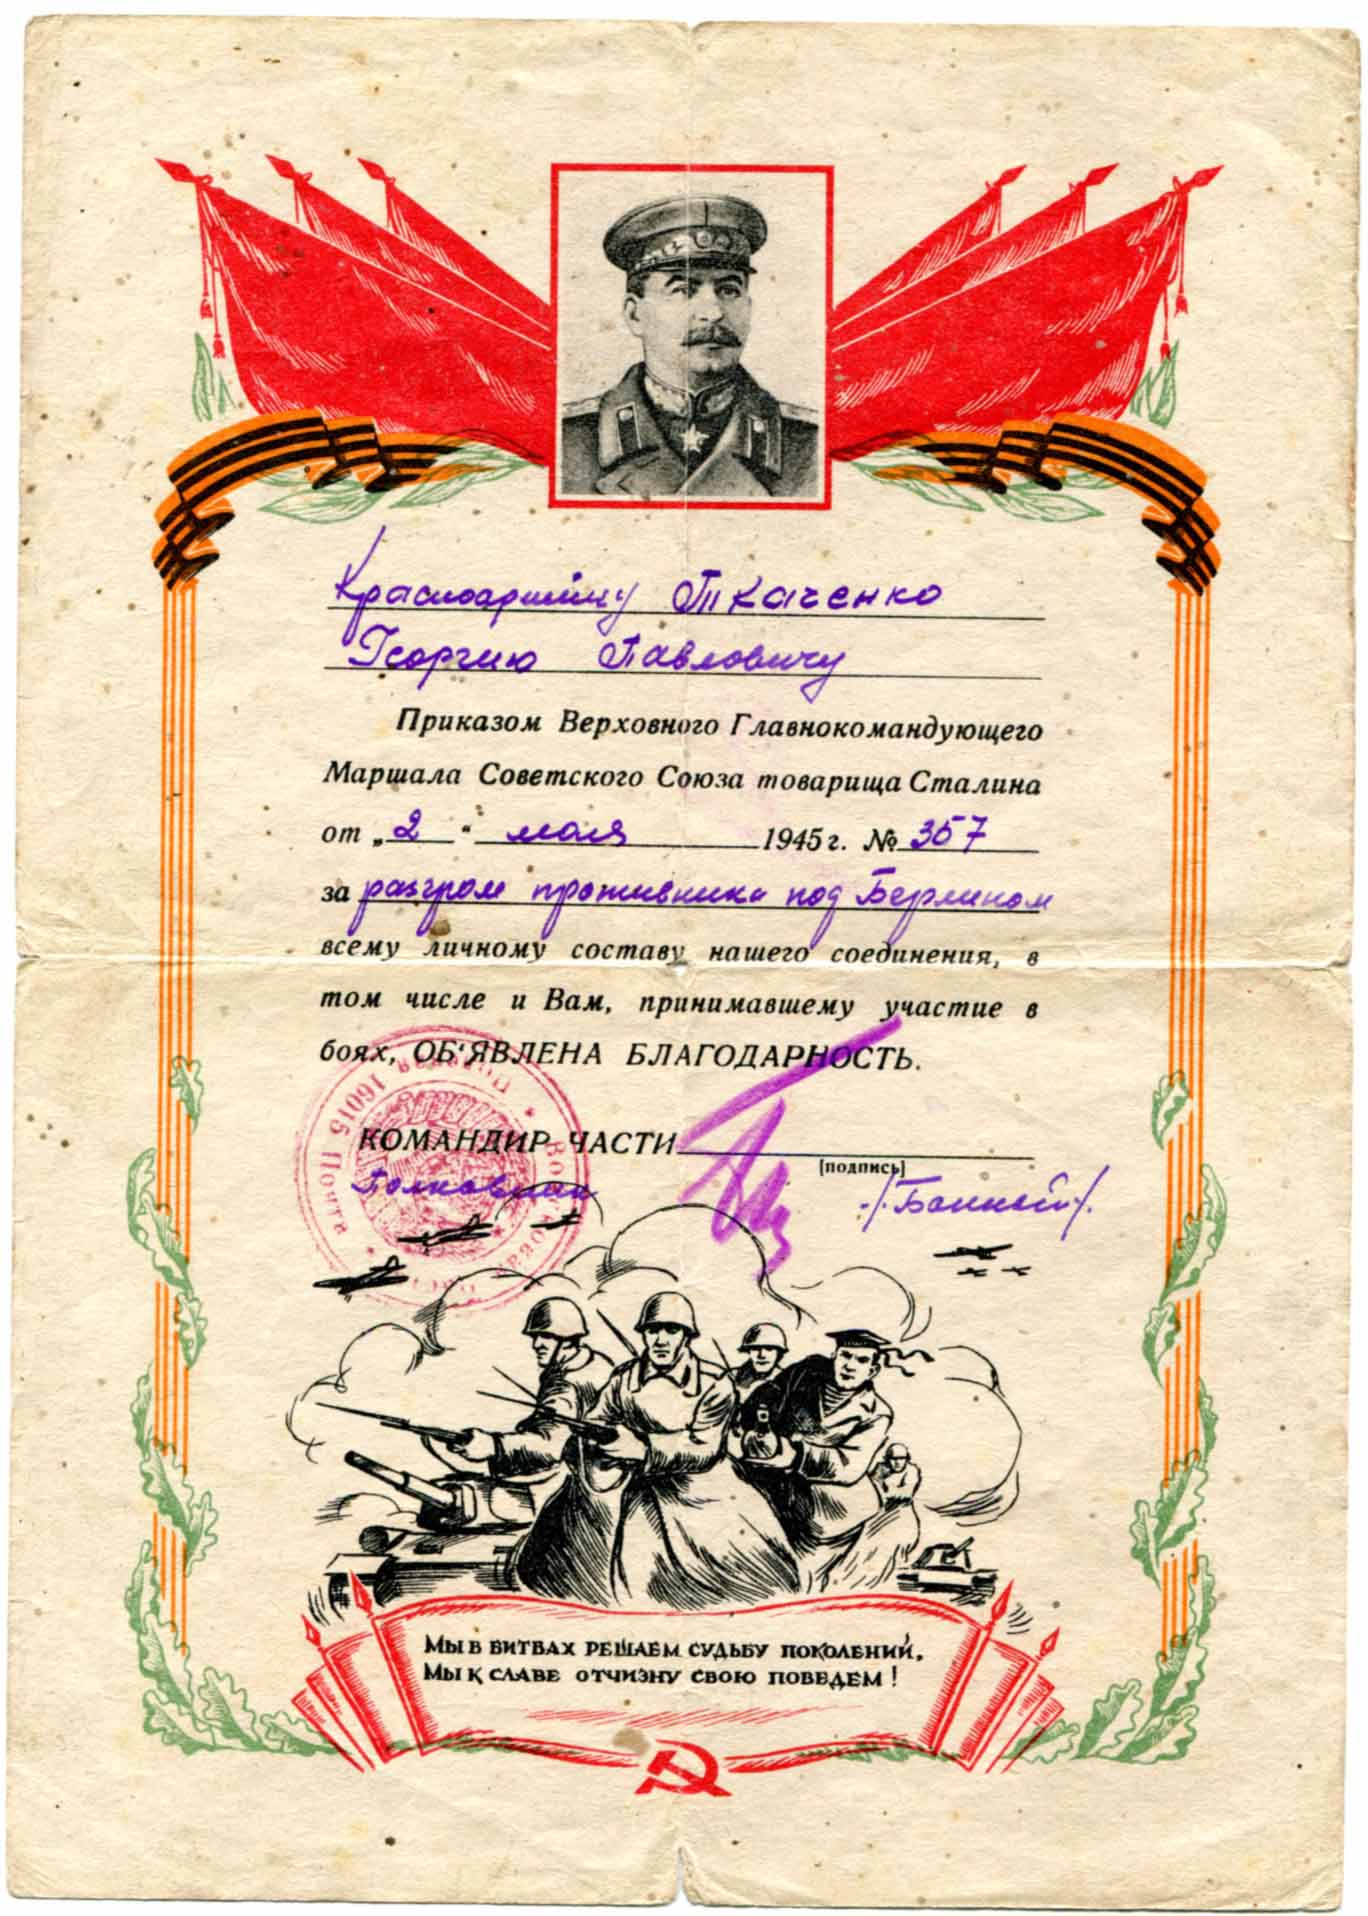 Красноармейцу Ткаченко
Георгию Павловичу
Приказом Верховного Главнокомандующего
Маршала Советского Союза товарища Сталина
от „2“ мая 1945 г. № 357
за разгром противника под Берлином
всему личному составу нашего соединения, в
том числе и Вам, принимавшему участие в
боях, ОБ‘ЯВЛЕНА БЛАГОДАРНОСТЬ.
КОМАНДИР ЧАСТИ
(подпись)
Полковник
Полевая 16015 Почта
МЫ В БИТВАХ РЕШАЕМ СУДЬБУ ПОКОЛЕНИЙ,
МЫ К СЛАВЕ ОТЧИЗНУ СВОЮ ПОВЕДЕМ!